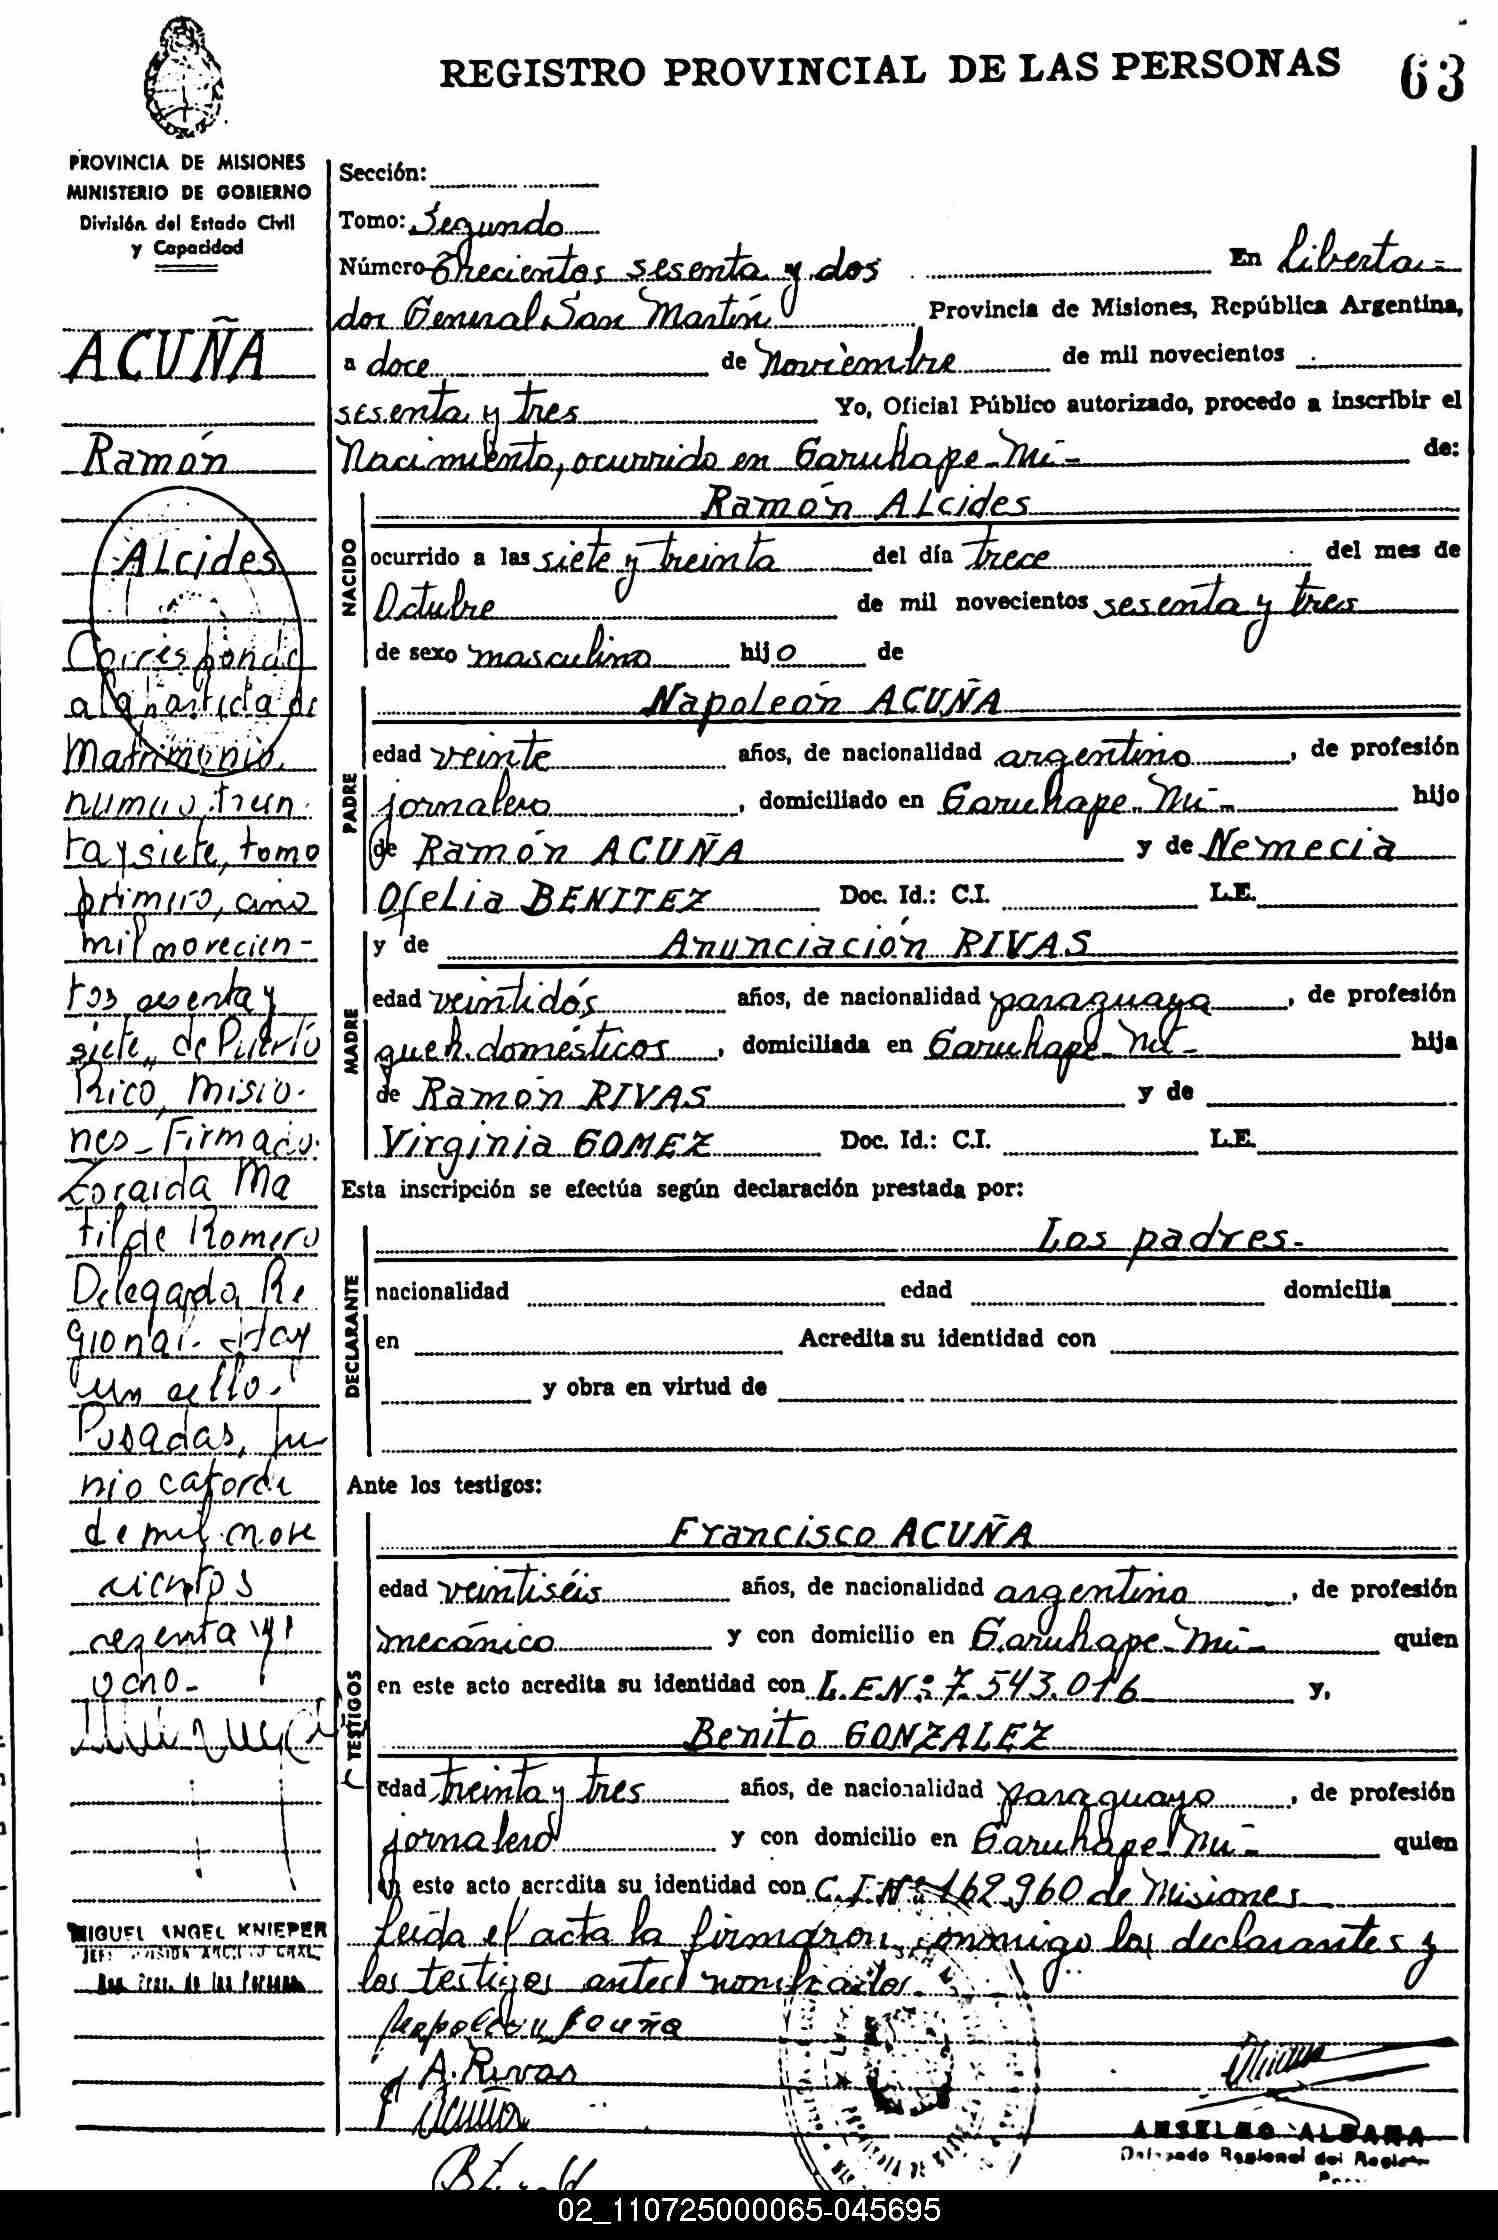 REGISTRO PROVINCIAL DE LAS PERSONAS 63
PROVINCIA DE MISIONES
MINISTERIO DE GOBIERNO
División del Estado Civil
y Capacidad
ACUÑA
Ramón
Alcides
Corresponde
a la partida de
Matrimonio
numero trein
ta y siete, tomo
primero, año
mil novecien-
tos sesenta y
siete, de Puerto
Rico, Misio-
nes - Firmado:
Zoraida Ma
tilde Romero
Delegada Re
gional. Hay
un sello.
Posadas, ju
nio catorce
de mil nove
cientos
sesenta y
ocho -
MIGUEL ANGEL KNIEPER
Sección:
Tomo: Segundo
Número Trecientos sesenta y dos En Liberta-
dor General San Martín Provincia de Misiones, República Argentina,
a doce de Noviembre de mil novecientos
sesenta y tres Yo, Oficial Público autorizado, procedo a inscribir el
Nacimiento, ocurrido en Garuhape-Mi- de:
NACIDO
Ramón Alcides
ocurrido a las siete y treinta del día trece del mes de
Octubre de mil novecientos sesenta y tres
de sexo masculino hijo de
PADRE
Napoleón ACUÑA
edad veinte años, de nacionalidad argentino, de profesión
jornalero, domiciliado en Garuhape-Mi- hijo
de Ramón ACUÑA y de Nemecia
Ofelia BENITEZ Doc. Id.: C.I. L.E.
MADRE
y de Anunciación RIVAS
edad veintidós años, de nacionalidad paraguaya, de profesión
queh. domésticos, domiciliada en Garuhape-Mi- hija
de Ramón RIVAS y de
Virginia GOMEZ Doc. Id.: C.I. L.E.
Esta inscripción se efectúa según declaración prestada por:
DECLARANTE
Los padres.-
nacionalidad edad domicilia
en Acredita su identidad con
y obra en virtud de
Ante los testigos:
TESTIGOS
Francisco ACUÑA
edad veintiséis años, de nacionalidad argentino, de profesión
mecánico y con domicilio en Garuhape-Mi- quien
en este acto acredita su identidad con L.E.Nº: 7.543.016 y,
Benito GONZALEZ
edad treinta y tres años, de nacionalidad paraguayo, de profesión
jornalero y con domicilio en Garuhape-Mi- quien
en este acto acredita su identidad con C.I.Nº: 162.960 de Misiones
Leída el acta la firmaron conmigo los declarantes y
los testigos antes nombrados.
Napoleón Acuña
A. Rivas
F Acuña
ANSELMO ALDANA
Delegado Regional del Registro
02_110725000065-045695